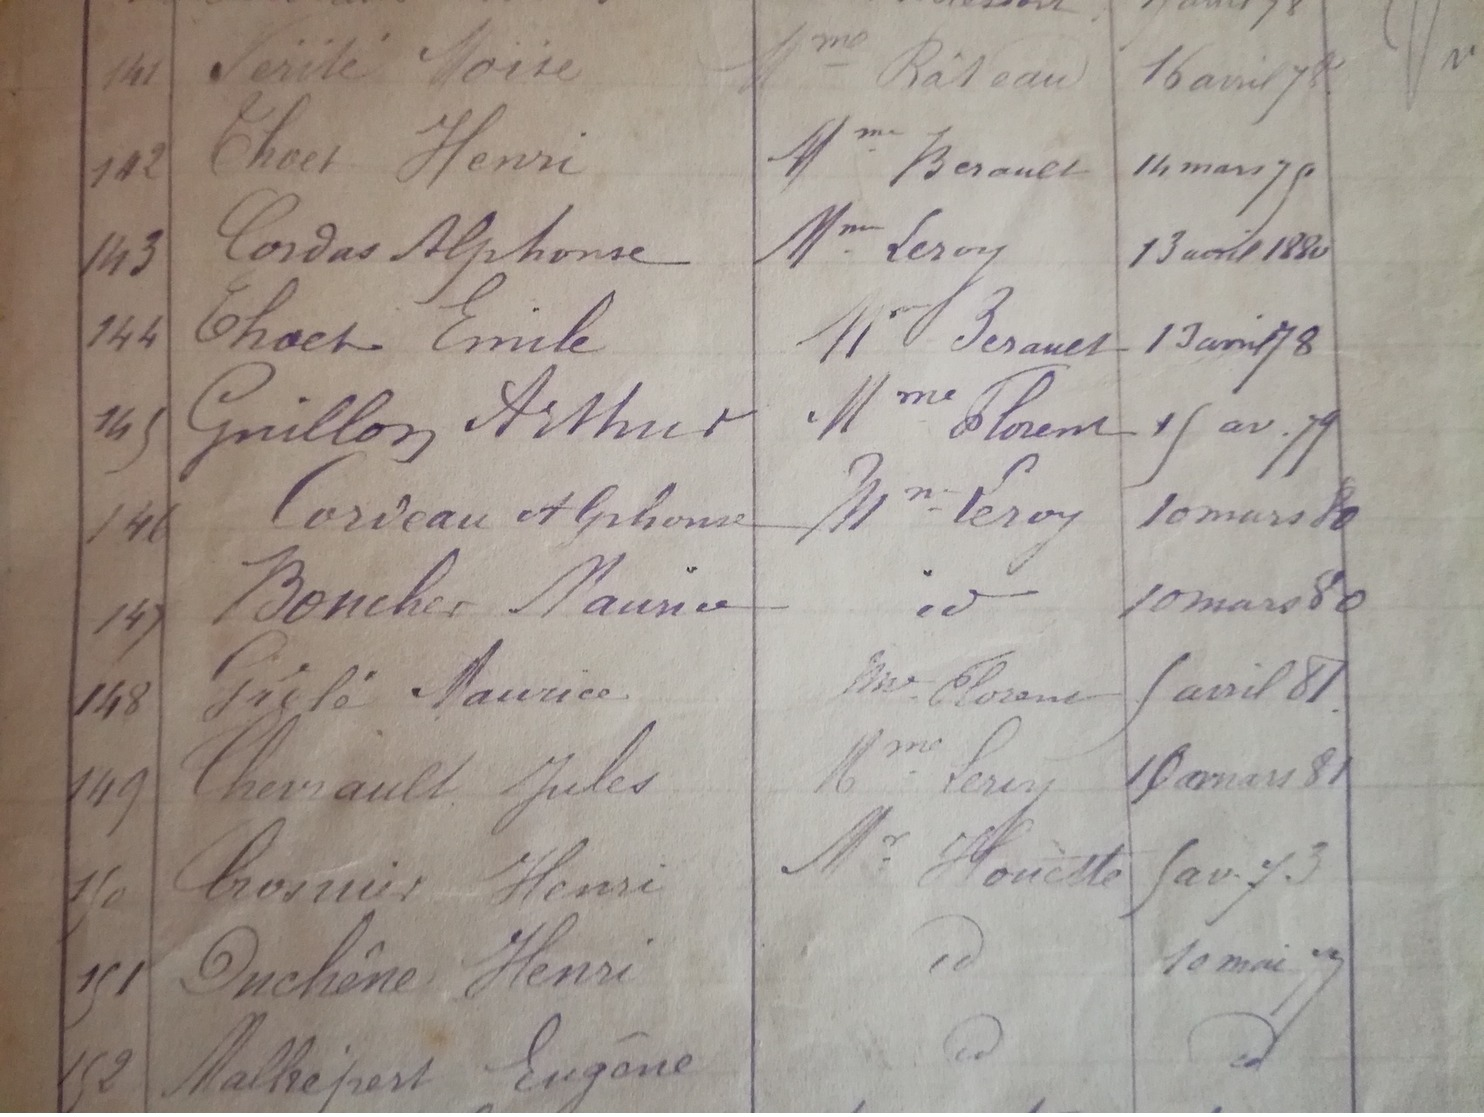 avril 78
141 Vérité Moïse Mme Râteau 16 avril 78
142 Choet Henri Mme Berault 14 mars 79
143 Cordas Alphonse Mme Leroy 13 avril 1880
144 Choet Emile Mr Berault 13 avril 78
145 Guillon Arthur Mme Florent 15 av. 79
146 Corveau Alphonse Mme Leroy 10 mars 80
147 Boucher Maurice id 10 mars 80
148 Maurice Mme Florent 5 avril 81.
149 Chevrault Jules Mme Leroy mars 81
150 Crosnier Henri Mr Houëtte 5 av. 73
151 Duchêne Henri id 10 mai 77
152 Malhépert Eugène id id